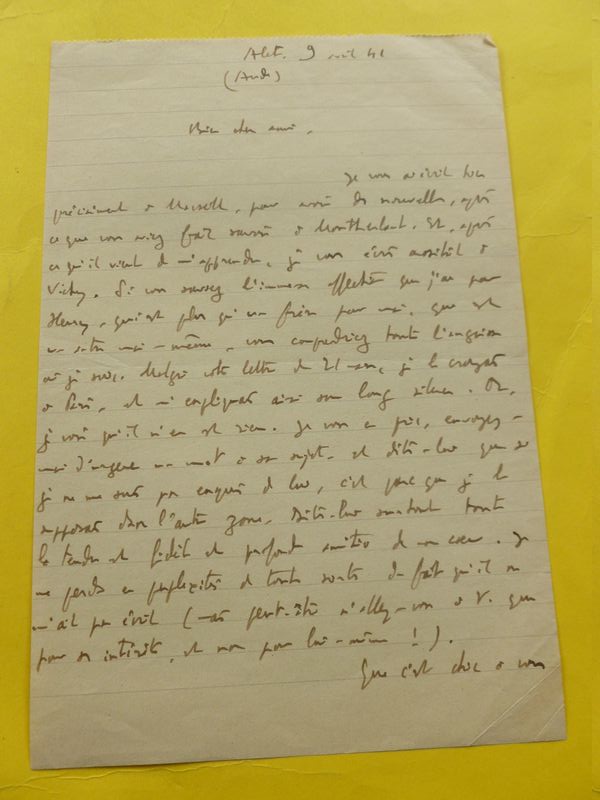 Alet. 9 avril 41
(Aude)
Bien cher ami,
Je vous ai écrit bien
précisément à Marseille, pour avoir des nouvelles, après
ce que vous aviez fait savoir à Montherlant. Et, après
ce qu'il vient de m'apprendre, je vous écris aussitôt à
Vichy. Si vous saviez l'immense affection que j'ai pour
Henry, qui est plus qu'un frère pour moi, que est
un autre moi-même, vous comprendriez toute l'angoisse
où je suis. Malgré votre lettre du 21, je le croyais
à Paris, et m'expliquais ainsi son long silence. Or,
je vois qu'il n'en est rien. Je vous en prie, envoyez-
moi d'urgence un mot à son sujet, et dites-lui que si
je ne me suis pas enquis de lui, c'est parce que je le
supposais dans l'autre zone. Dites-lui surtout toute
la tendre et fidèle et profonde amitié de mon coeur. Je
me perds en perplexités de toute sorte du fait qu'il ne
m'ait pas écrit (mais peut-être n'allez-vous à V. que
pour ses intérêts, et non pour lui-même !).
Que c'est chic à vous